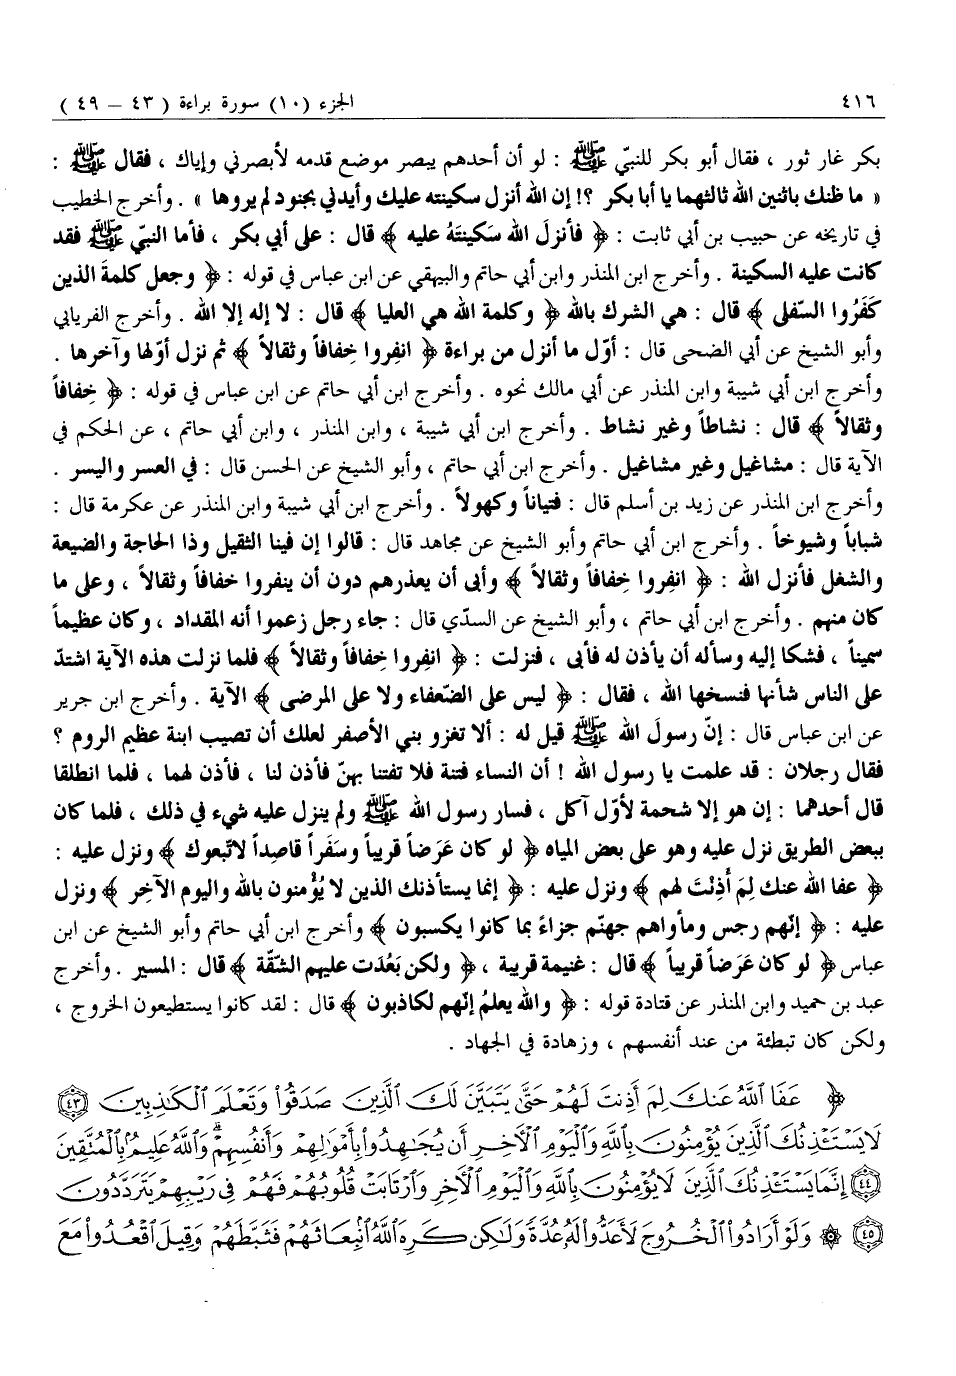 ٤١٦ الجزء (١٠) سورة براءة ( ٤٣ – ٤٩ )
بكر غار ثور ، فقال أبو بكر للنبيّ ﷺ : لو أن أحدهم يبصر موضع قدمه لأبصرني وإياك ، فقال ﷺ :
« ما ظنك باثنين الله ثالثهما يا أبا بكر ؟! إن الله أنزل سكينته عليك وأيدني بجنود لم يروها » . وأخرج الخطيب
في تاريخه عن حبيب بن أبي ثابت : ﴿ فأنزلَ الله سَكينتَهُ عليه ﴾ قال : على أبي بكر ، فأما النبيّ ﷺ فقد
كانت عليه السكينة . وأخرج ابن المنذر وابن أبي حاتم والبيهقي عن ابن عباس في قوله : ﴿ وجعل كلمةَ الذين
كَفَرُوا السّفلى ﴾ قال : هي الشرك بالله ﴿ وكلمة الله هي العليا ﴾ قال : لا إله إلا الله . وأخرج الفريابي
وأبو الشيخ عن أبي الضحى قال : أوّل ما أنزل من براءة ﴿ انفِروا خِفافاً وثقالاً ﴾ ثم نزل أوّلها وآخرها .
وأخرج ابن أبي شيبة وابن المنذر عن أبي مالك نحوه . وأخرج ابن أبي حاتم عن ابن عباس في قوله : ﴿ خِفافاً
وثقالاً ﴾ قال : نشاطاً وغير نشاط . وأخرج ابن أبي شيبة ، وابن المنذر ، وابن أبي حاتم ، عن الحكم في
الآية قال : مشاغيل وغير مشاغيل . وأخرج ابن أبي حاتم ، وأبو الشيخ عن الحسن قال : في العسر واليسر .
وأخرج ابن المنذر عن زيد بن أسلم قال : فتياناً وكهولاً . وأخرج ابن أبي شيبة وابن المنذر عن عكرمة قال :
شباباً وشيوخاً . وأخرج ابن أبي حاتم وأبو الشيخ عن مجاهد قال : قالوا إن فينا الثقيل وذا الحاجة والضيعة
والشغل فأنزل الله : ﴿ انفِروا خِفافاً وثقالاً ﴾ وأبى أن يعذرهم دون أن ينفروا خفافاً وثقالاً ، وعلى ما
كان منهم . وأخرج ابن أبي حاتم ، وأبو الشيخ عن السدّي قال : جاء رجل زعموا أنه المقداد ، وكان عظيماً
سميناً ، فشكا إليه وسأله أن يأذن له فأبى ، فنزلت : ﴿ انفِروا خِفافاً وثقالاً ﴾ فلما نزلت هذه الآية اشتدّ
على الناس شأنها فنسخها الله ، فقال : ﴿ ليس على الضّعفاء ولا على المرضى ﴾ الآية . وأخرج ابن جرير
عن ابن عباس قال : إنّ رسولَ الله ﷺ قيل له : ألا تغزو بني الأصفر لعلك أن تصيب ابنة عظيم الروم ؟
فقال رجلان : قد علمت يا رسول الله ! أن النساء فتنة فلا تفتنا بهنّ فأذن لنا ، فأذن لهما ، فلما انطلقا
قال أحدهما : إن هو إلا شحمة لأوّل آكل ، فسار رسول الله ﷺ ولم ينزل عليه شيء في ذلك ، فلما كان
ببعض الطريق نزل عليه وهو على بعض المياه ﴿ لو كان عَرَضاً قريباً وسَفَراً قاصداً لاتّبعوك ﴾ ونزل عليه :
﴿ عفا الله عنك لِمَ أَذِنْتَ لهم ﴾ ونزل عليه : ﴿ إنما يستأذنك الذين لا يُؤْمنون بالله واليوم الآخِر ﴾ ونزل
عليه : ﴿ إنّهم رجس ومأواهم جهنّم جزاءً بما كانوا يكسبون ﴾ وأخرج ابن أبي حاتم وأبو الشيخ عن ابن
عباس ﴿ لو كان عَرَضاً قريباً ﴾ قال : غنيمة قريبة ، ﴿ ولكن بَعُدَت عليهم الشقّة ﴾ قال : المسير . وأخرج
عبد بن حميد وابن المنذر عن قتادة قوله : ﴿ والله يعلمُ إنّهم لكاذبون ﴾ قال : لقد كانوا يستطيعون الخروج ،
ولكن كان تبطئة من عند أنفسهم ، وزهادة في الجهاد .
﴿ عَفَا ٱللَّهُ عَنكَ لِمَ أَذِنتَ لَهُمْ حَتَّىٰ يَتَبَيَّنَ لَكَ ٱلَّذِينَ صَدَقُوا۟ وَتَعْلَمَ ٱلْكَٰذِبِينَ ٤٣
لَا يَسْتَـْٔذِنُكَ ٱلَّذِينَ يُؤْمِنُونَ بِٱللَّهِ وَٱلْيَوْمِ ٱلْءَاخِرِ أَن يُجَٰهِدُوا۟ بِأَمْوَٰلِهِمْ وَأَنفُسِهِمْ ۗ وَٱللَّهُ عَلِيمٌۢ بِٱلْمُتَّقِينَ
٤٤ إِنَّمَا يَسْتَـْٔذِنُكَ ٱلَّذِينَ لَا يُؤْمِنُونَ بِٱللَّهِ وَٱلْيَوْمِ ٱلْءَاخِرِ وَٱرْتَابَتْ قُلُوبُهُمْ فَهُمْ فِى رَيْبِهِمْ يَتَرَدَّدُونَ
٤٥ ۞ وَلَوْ أَرَادُوا۟ ٱلْخُرُوجَ لَأَعَدُّوا۟ لَهُۥ عُدَّةً وَلَٰكِن كَرِهَ ٱللَّهُ ٱنۢبِعَاثَهُمْ فَثَبَّطَهُمْ وَقِيلَ ٱقْعُدُوا۟ مَعَ